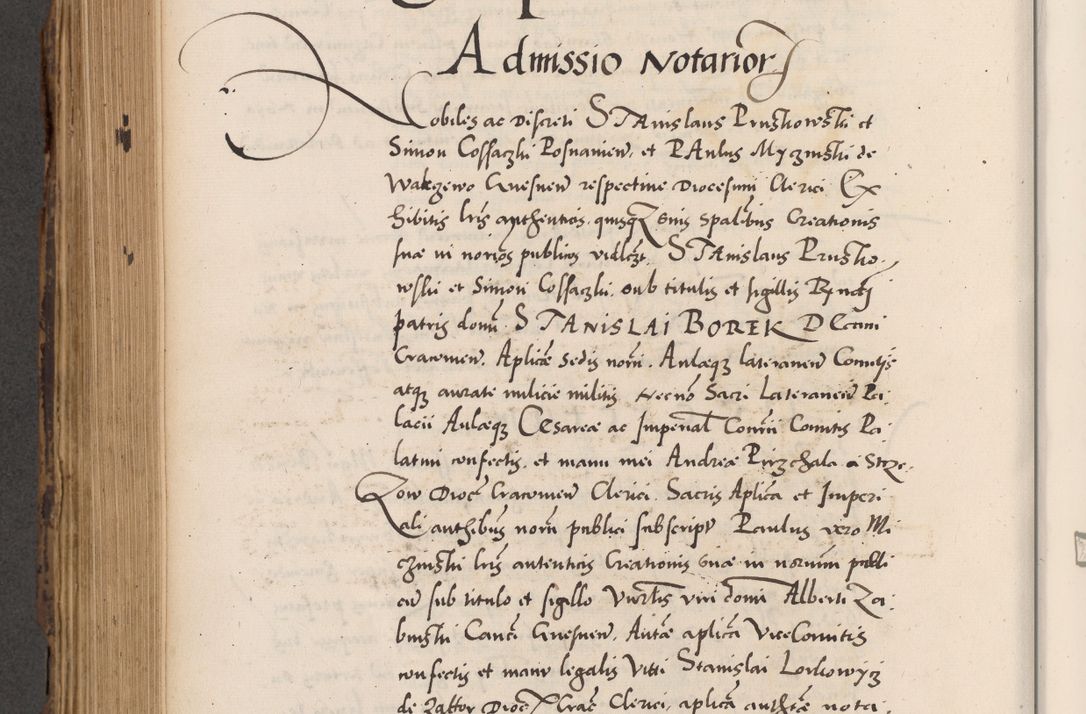 Admissio Notarior
Nobiles ac Discreti STAnislaus Pruskowski et
Simon Cossaczki Posnanien. et PAulus Myczinski de
Walczewo Gnesnen respective Diocesum Clerici Ex
hibitis lris aythenticis quusq suis spalibus Creationis
suæ in norios publicos vidlczt. STAnislaus Prusko
wski et Simon Cossaczki. sub titulis et sigillis Rndi
patris domi. STANISLAI BOREK DCtini
Cracovien. Aplicæ Sedis norii. Aulæq lateranen Comitis
atq auratæ milicie militis Necno Sacri Lateranen Pa
lacii Aulæq Cesareæ ac Imperial Comii Comitis Pa
latini confectis. et manu mei Andreæ Przchala a Strze
Zow Dioc Cracovien Clerici. Sacris Aplica et Imperi
ali authibus norii publici subscrip Paulus vero Mi
czinski lris autenticis Creationis suæ in norium publi
cu sub titulo et sigillo Vnrlis viri domi Alberti Za
binski Canci Gnesnen. Autæ aplica ViceComitis
confectis et manu legalis Vitti Stanislai Lochowyz
de Zattor Dioc Crac Clerici, aplica authte nota